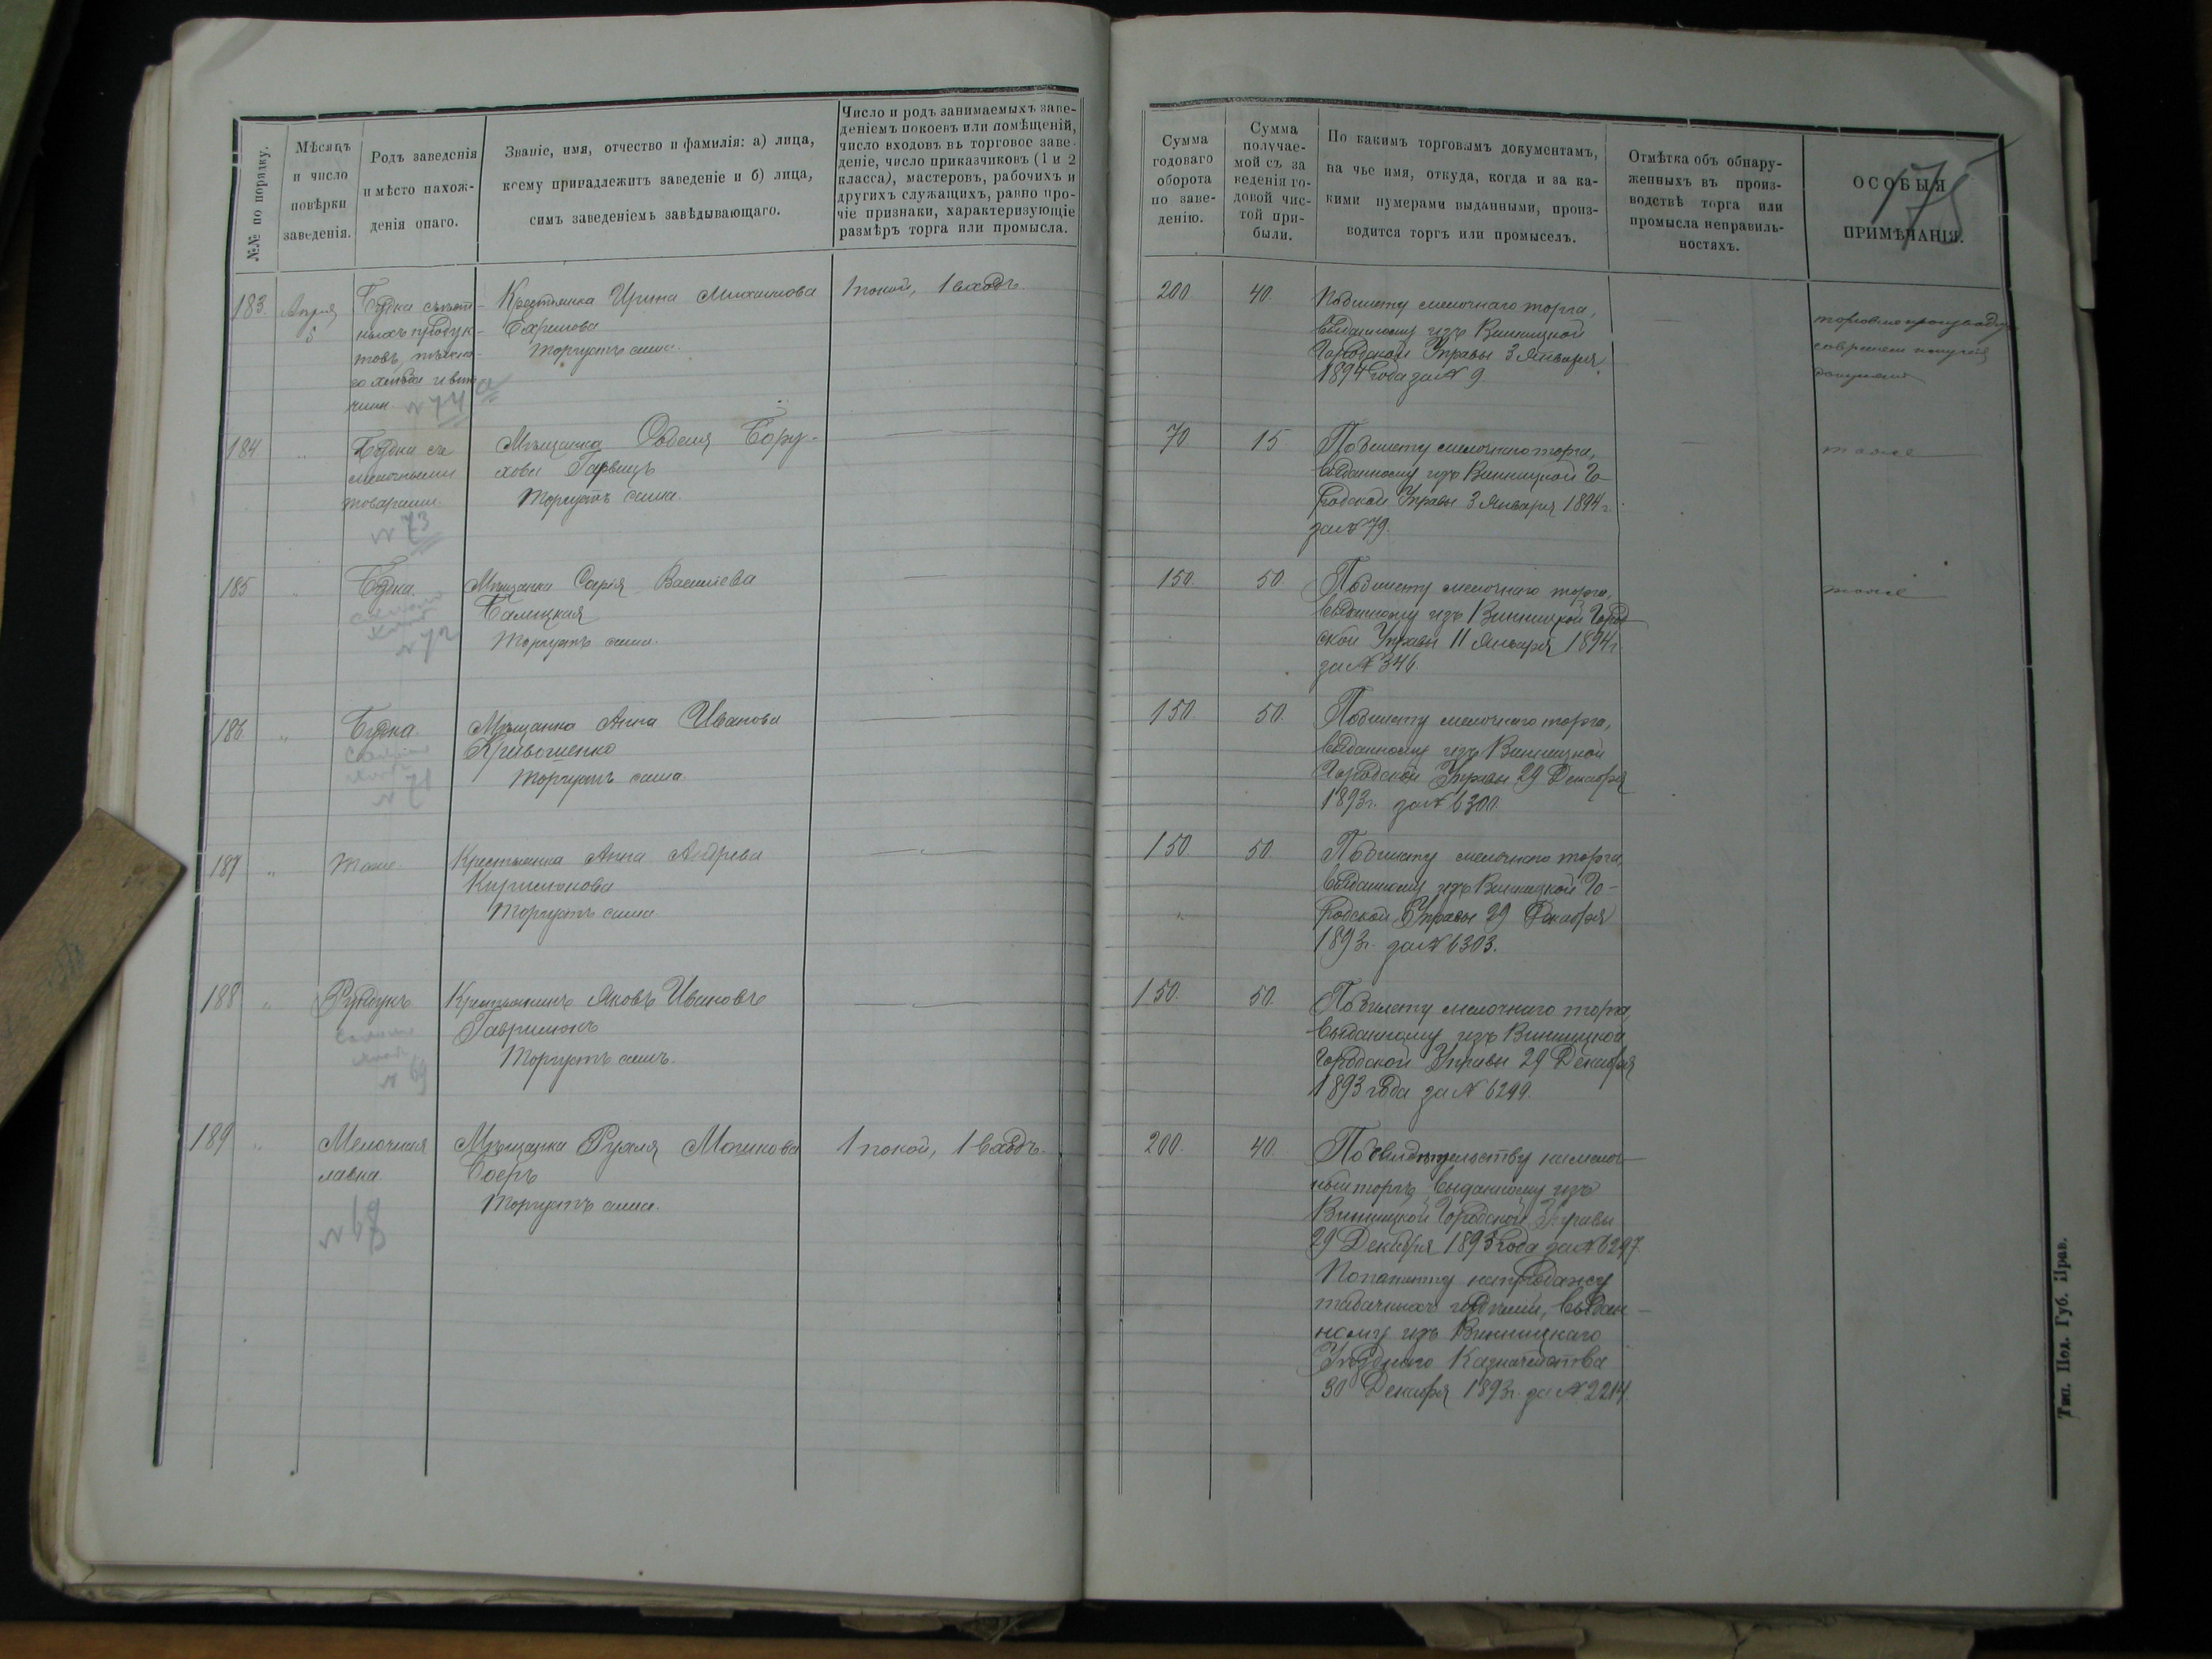 №№ по порядку.
Мѣсяцъ
и число
повѣрки
заведенія.
Родъ заведенія
и мѣсто нахож-
денія онаго.
Званіе, имя, отчество и фамилія: а) лица,
коему принадлежитъ заведеніе и б) лица,
симъ заведеніемъ завѣдывающаго.
Число и родъ занимаемыхъ заве-
деніемъ покоевъ или помѣщеній,
число входовъ въ торговое заве-
деніе, число приказчиковъ (1 и 2
класса), мастеровъ, рабочихъ и
другихъ служащихъ, равно про-
чіе признаки, характеризующіе
размѣръ торга или промысла.
Сумма
годоваго
оборота
по заве-
денію.
Сумма
получае-
мой съ за
веденія го-
довой чис-
той при-
были.
По какимъ торговымъ документамъ,
на чье имя, откуда, когда и за ка-
кими нумерами выданными, произ-
водится торгъ или промыселъ.
Отмѣтка объ обнару-
женныхъ въ произ-
водствѣ торга или
промысла неправиль-
ностяхъ.
ОСОБЫЯ
ПРИМѢЧАНІЯ.
175
183.
Апрѣля
5
Будка съѣст-
ныхъ продук-
товъ,
N 74
Крестьянка Ирина Михаилова
Ефремова
Торгуетъ сама.
1 покой, 1 входъ.
200
40.
По билету мелочнаго торга,
выданному изъ Винницкой
Городской Управы 3 Января
1894 года за N 9.
документа
184
"
Будка съ
мелочными
товарами.
N 73
Мѣщанка Ободея Бору-
хова Гарвицъ
Торгуетъ сама.
70
15.
По билету мелочнаго торга,
выданному изъ Винницкой Го-
родской Управы 3 Января 1894 г.
за N 79.
тоже
185
"
Будка.
N 72
Мѣщанка Софія Васильева
Балицкая
Торгуетъ сама.
150.
50
По билету мелочнаго торга,
выданному изъ Винницкой Город-
ской Управы 11 Января 1894 г.
за N 346.
тоже
186.
"
Будка.
N 71
Мѣщанка Анна Иванова
Кривошенко
Торгуетъ сама.
150.
50.
По билету мелочнаго торга,
выданному изъ Винницкой
Городской Управы 29 Декабря
1893 г. за N 6300.
187
"
Тоже.
Крестьянка Анна Андрѣева
Торгуетъ сама.
150
50
По билету мелочнаго торга,
выданному изъ Винницкой Го-
родской Управы 29 Декабря
1893 г. за N 6303.
188
"
Рундукъ
N 69
Крестьянинъ Яковъ Ивановъ
Гаврилюкъ
Торгуетъ самъ.
150.
50.
По билету мелочнаго торга,
выданному изъ Винницкой
Городской Управы 29 Декабря
1893 года за N 6299.
189
"
Мелочная
лавка.
N 68
Мѣщанка Рухля Мошкова
Боеръ
Торгуетъ сама.
1 покой, 1 входъ.
200.
40.
По свидѣтельству на мелоч-
ный торгъ, выданному изъ
Винницкой Городской Управы
29 Декабря 1893 года за N 6297.
По патенту на продажу
табачныхъ издѣлій, выдан-
ному изъ Винницкаго
Уѣзднаго Казначейства
30 Декабря 1893 г. за N 2214.
Тип. Под. Губ. Прав.